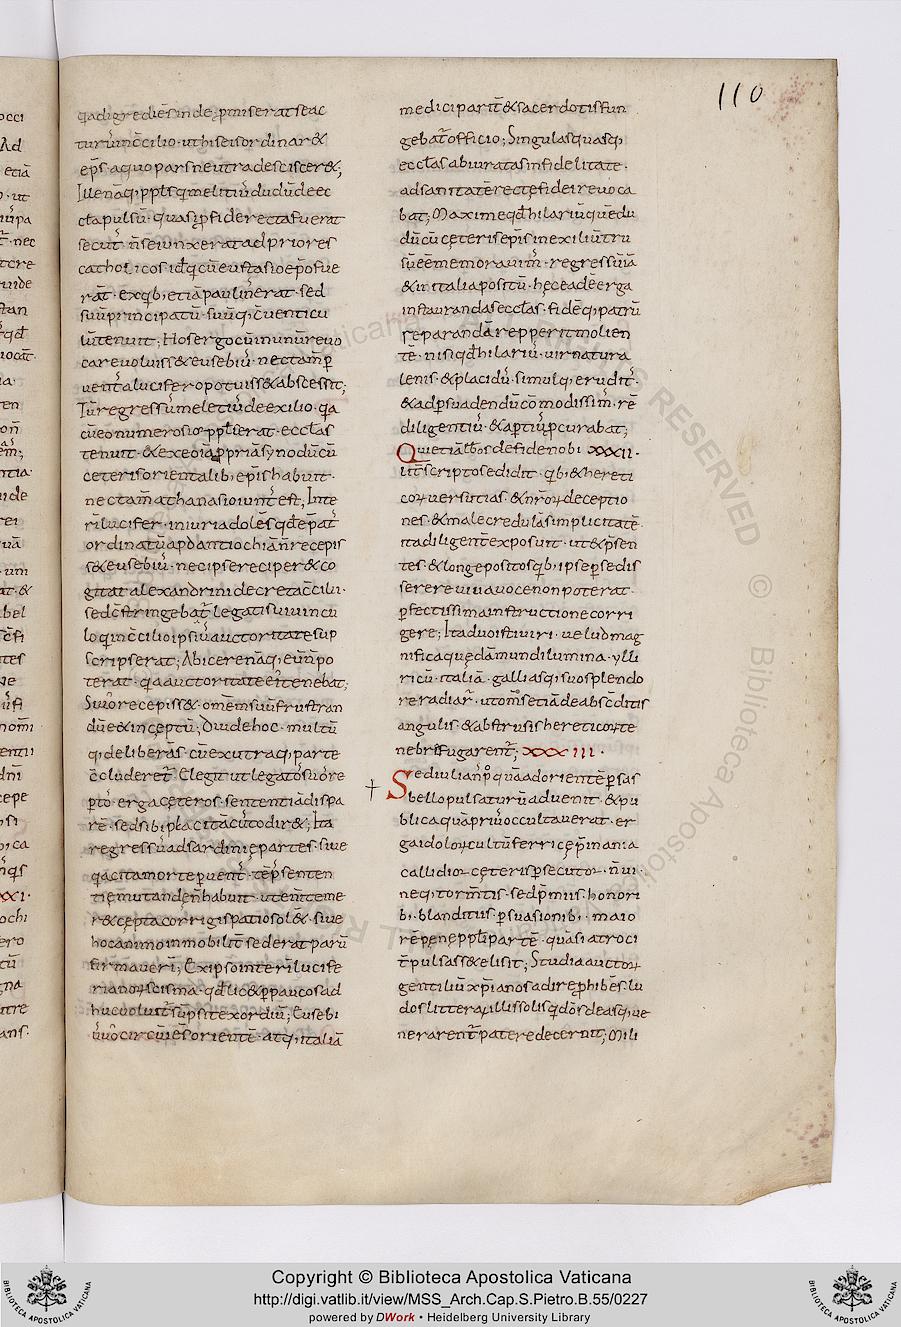 110
q̄a digrediēs inde p̱miserat se ac
turū in c̄cilio · ut his eis ordinar&
ep̄s a quo pars neutra descisceret&;
Ille nāq; pp̄ls q̄ melitiū dudū de ec
cl̄a pulsū · quasi p̱ fide recta fuerat
secut̄ n̄ se iunxerat ad priores
catholicos id q̄ cū eustasio ep̄o fue
rāt · ex q̇b; etiā paulin̄ erat · sed
suū principatū · suūq; c̄uenticu
lū tenuit; Hos ergo cū in unū reuo
care uoluiss& eusebiū · nec tam̄ p̱
uent̄ a lucifero potuiss& abscessit;
Iūr regressū meletiū de exilio · q̄a
cū eo numerosior pp̄ls erat · eccl̄as
tenuit · & ex eo iā p̱priā synodū cū
ceteris orientalib; ep̄is habuit ·
nec tam̄ athanasio iunct̄ est; Inte
rī lucifer · iniuria dolēs qd̄ ep̄at̄
ordinatū ap̱d antiochiā n̄ recepis
s& eusebiū · nec ipse reciper& co
gitat alexandrini decreta c̄cilii ·
sed c̄stringebat̄ legati sui uincu
lo qui in c̄cilio ipsiū auctoritate sup
scripserat; Abicere nāq; eū n̄ po
terat · q̄a auctoritate ei tenebat;
Si uo recepiss& · om̄e suū frustran
dū e& inceptū; Diu de hoc · multū
q; deliberās · cū ex utraq; parte
c̄cluderet̄ · Elegit ut legato suo re
p̱to · erga ceteros · sententiā dispa
rē · sed sibi placitā custodir&; Ita
regressū ad sardiniȩ partes · siue
q̄a cita morte p̱uent̄ · tēp̱s senten
tiȩ mutandȩ n̄ habuit · ut enī teme
r& cȩpta corrigi spatio sol& · siue
hoc animo inmobilit̄ sederat parū
firmauerī; Ex ipso interī lucife
rianoꝝ scisma · qd̄ lic& p̱ paucos ad
huc uoluit̄ sūpsit exordiū; Eusebi
ū uo circūiēs oriente · atq; italiā
medici parit̄ & sacerdotis fun
gebat̄ officio; Singulas quasq;
eccl̄as abiuratas infidelitate ·
ad sanitatē rectȩ fidei reuoca
bat; Maxime qd̄ hilariū quē du
dū cū ceteris ep̄is in exiliū tru
sū eē memorauim̄ · regressū iā
& in italia positū · hec eadē erga
instaurandas eccl̄as · fidēq; patrū
reparandā repperit molien
tē · nisi qd̄ hilariū · uir natura
lenis · & placidū · simulq; erudit̄ ·
& ad p̱suadendū cōmodissim̄ · rē
diligentiū · & aptiū p̱curabat;
Qui etiā lib̄os de fide nobi · xxxii ·
lit̄ scriptos edidit · q̇b; & hereti
coꝝ uersutias · & nr̄oꝝ deceptio
nes · & male credulā simplicitatē ·
ita diligent̄ exposuit · ut & p̱sen
tes · & longe positos q̇b; ipse p̱ se dis
serere uiua uoce non poterat ·
p̱fectissima instructione corri
gere; Ita duo isti uiri · uelud mag
nifica quȩdā mundi lumina · ylli
ricū · italiā · galliasq; suo splendo
re radiar̄ · ut om̄s etiā de absc̄ditis
angulis · & abstrusis hereticoꝝ te
nebrȩ fugarent̄; xxxiii ·
Sed iulian̄ p̱quā ad oriente p̱sas
bello pulsaturū aduenit · & pu
blica quā priū occultauerat · er
ga idoloꝝ cultū ferri cȩp̄ insania
callidioꝛ ceteris p̱secutoꝛ · n̄ ui ·
neq; torm̄tis · sed p̱miis · honori
b; · blanditiis · p̱suasionib; · maio
rē pene pp̄li partē · quā si atroci
t̄ pulsass& elisit; Studia auctoꝝ
gentiliū xpianos adire p̱hibēs · lu
dos litteraꝝ illis solis q̇ dōs deasq; ue
nerarent̄ patere decernit; Mili
Copyright © Biblioteca Apostolica Vaticana
http://digi.vatlib.it/view/MSS_Arch.Cap.S.Pietro.B.55/0227
powered by DWork • Heidelberg University Library